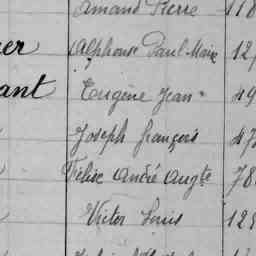 Amand Pierre 118
er Alphonse Paul Marie 12
ant Eugène Jean 49
Joseph François 47
Félix André Augte 78
Victor Louis 129